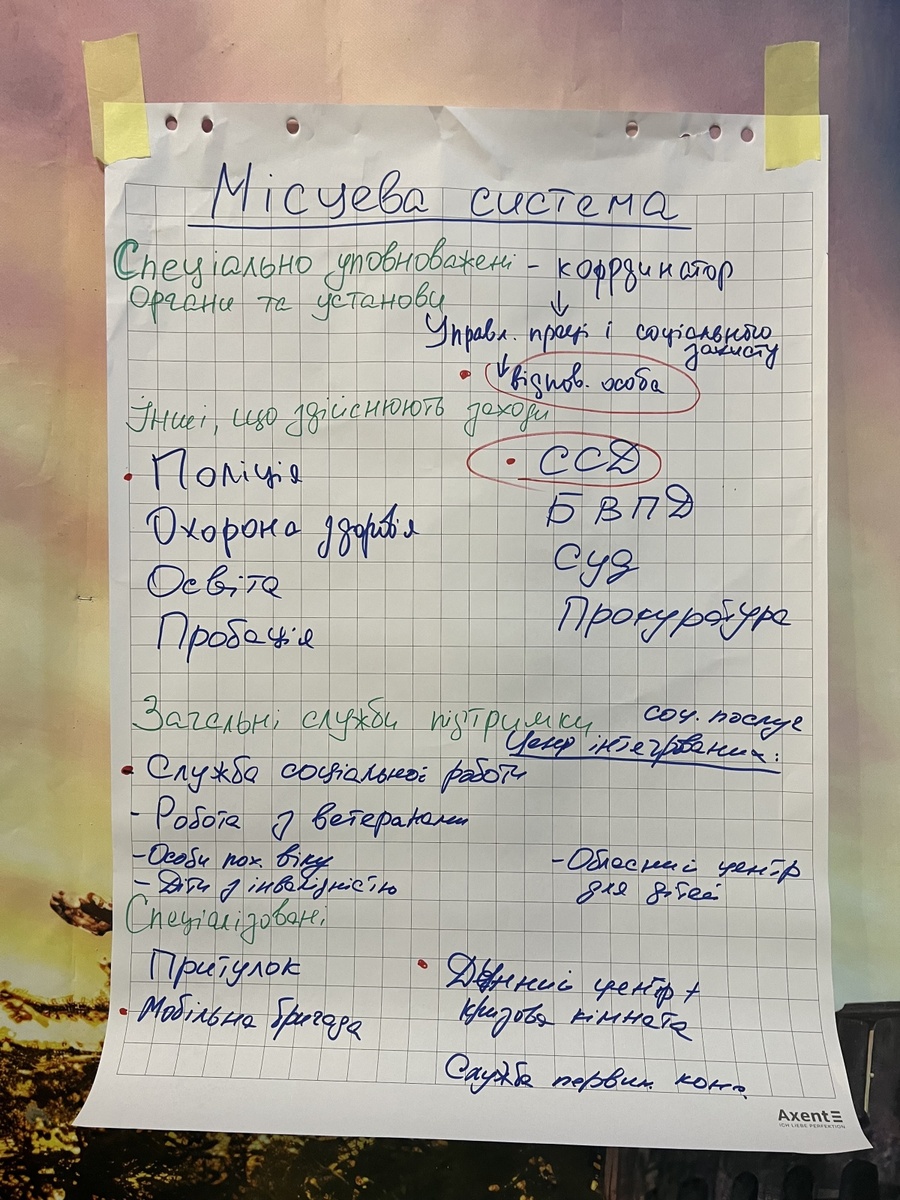 Місцева система
Спеціально уповноважені - коррдинатор
Органи та установи
↓
Управл. праці і соціального
захисту
↓
• відпов. особа
Інші, що здійснюють заходи
• Поліція
• ССД
Охорона здоров'я
БВПД
Освіта
Суд
Пробація
Прокуратура
Загальні служби підтримки
соц. послуг
Центр інтегрованих:
• Служба соціальної роботи
- Робота з ветеранами
- Особи пох. віку
- Обласний центр
- Діти з інвалідністю
для дітей
Спеціалізовані
Притулок
• Денний центр +
• Мобільна бригада
кризова кімната
Служба первин. конс.
Axent
ICH LIEBE PERFEKTION